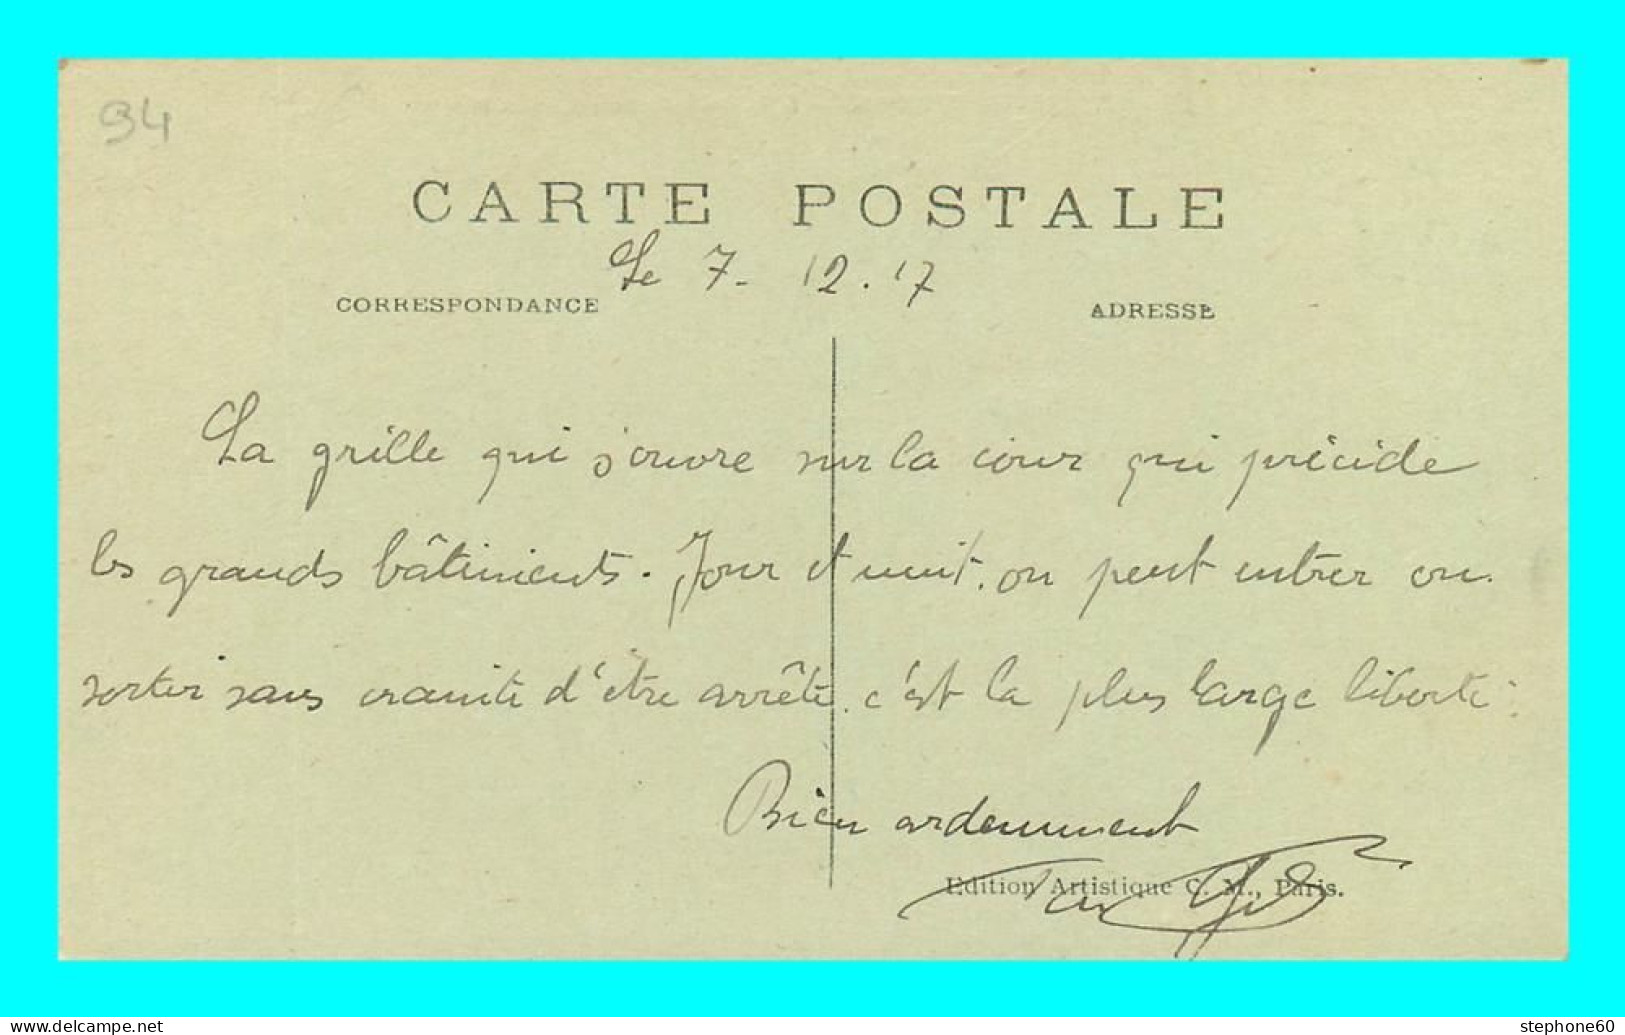 94
CARTE POSTALE
Le 7 - 12 . 17
CORRESPONDANCE
ADRESSE
La grille qui s'ouvre sur la cour qui précède
les grands bâtiments. Jour et nuit. on peut entrer ou
sortir sans crainte d'être arrêté. c'est la plus large liberté.
Bien ardemment
Edition Artistique C. M., Paris.
www.delcampe.net
stephone60